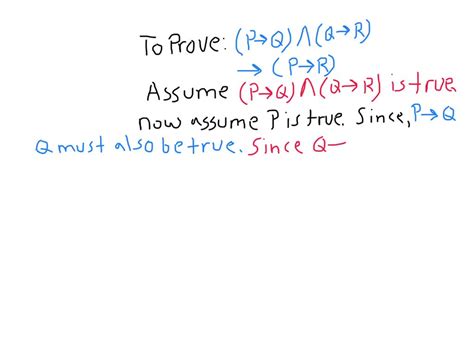 To Prove: (P→Q) ∧ (Q→R)
→ (P→R)
Assume (P→Q) ∧ (Q→R) is true
now assume P is true. Since, P→Q
Q must also be true. Since Q—